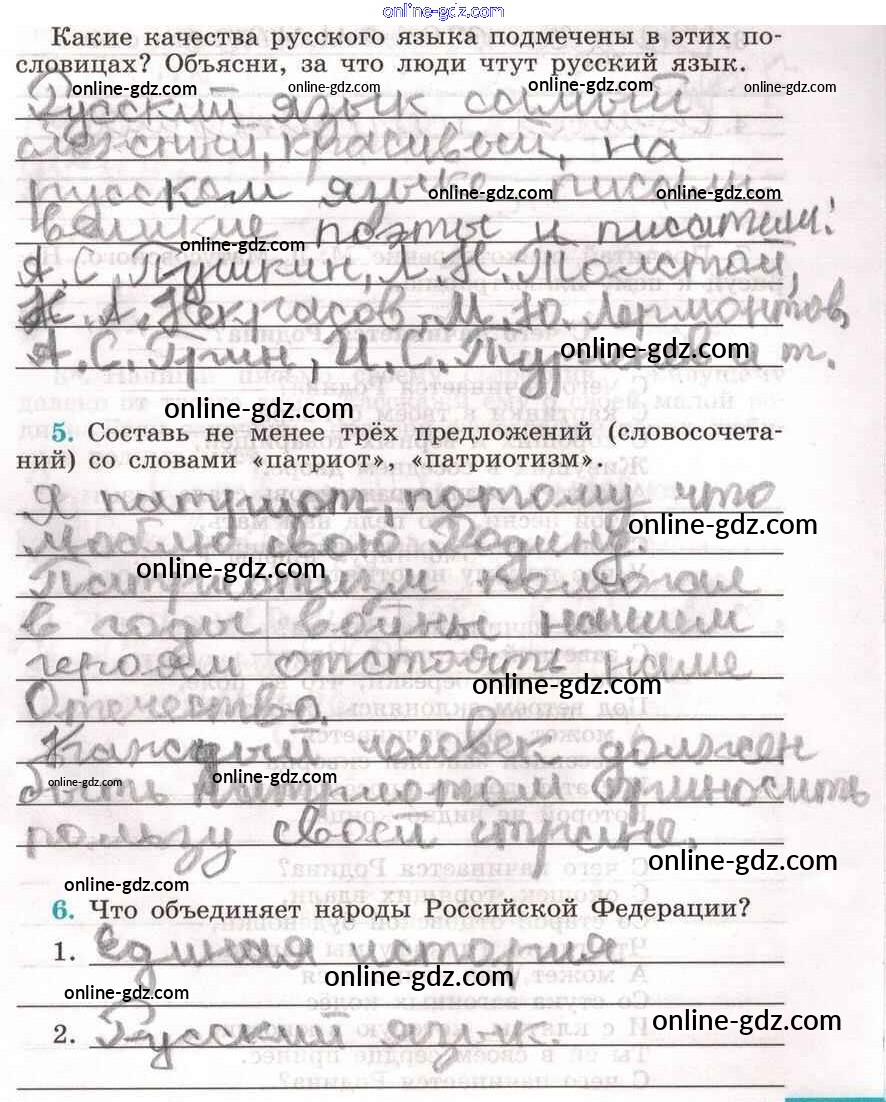 online-gdz.com
Какие качества русского языка подмечены в этих по-
словицах? Объясни, за что люди чтут русский язык.
online-gdz.com online-gdz.com online-gdz.com online-gdz.com
Русский язык самый
сложный, красивый, на
русском языке писали
online-gdz.com online-gdz.com
великие поэты и писатели:
online-gdz.com
А.С. Пушкин, Л.Н. Толстой,
Н.А. Некрасов, М.Ю. Лермонтов,
А.С. Грин, И.С. Тургенев и т.
online-gdz.com
online-gdz.com
5. Составь не менее трёх предложений (словосочета-
ний) со словами «патриот», «патриотизм».
Я патриот, потому что
online-gdz.com
люблю свою Родину.
online-gdz.com
Патриотизм помогал
в годы войны нашим
героям отстоять наше
online-gdz.com
Отечество.
Каждый человек должен
online-gdz.com online-gdz.com
быть патриотом приносить
пользу своей стране.
online-gdz.com
online-gdz.com
6. Что объединяет народы Российской Федерации?
1. Единая история
online-gdz.com
online-gdz.com
2. Русский язык.
online-gdz.com